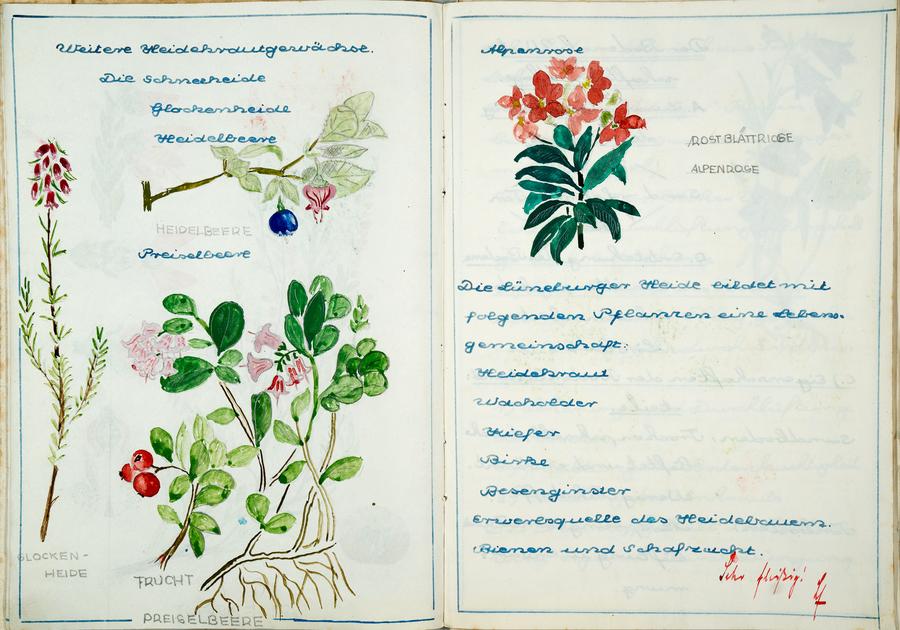 Weitere Heidekrautgewächse.
Die Schneeheide
Glockenheide
Heidelbeere
HEIDELBEERE
Preiselbeere
GLOCKEN-
HEIDE
FRUCHT
PREISELBEERE
Alpenrose
ROSTBLÄTTRIGE
ALPENROSE
Die Lüneburger Heide bildet mit
folgenden Pflanzen eine Lebens-
gemeinschaft:
Heidekraut
Wacholder
Kiefer
Birke
Besenginster
Erwerbsquelle des Heidebauern.
Bienen und Schafzucht.
Sehr fleißig!